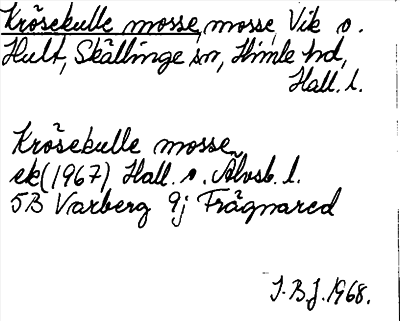 Krösekulle mosse, mosse, Vik o.
Hult, Skällinge sn, Himle hd,
Hall. l.
Krösekulle mosse
ek (1967) Hall. o. Älvsb. l.
5B Varberg 9j Frägnared
J.B.J. 1968.